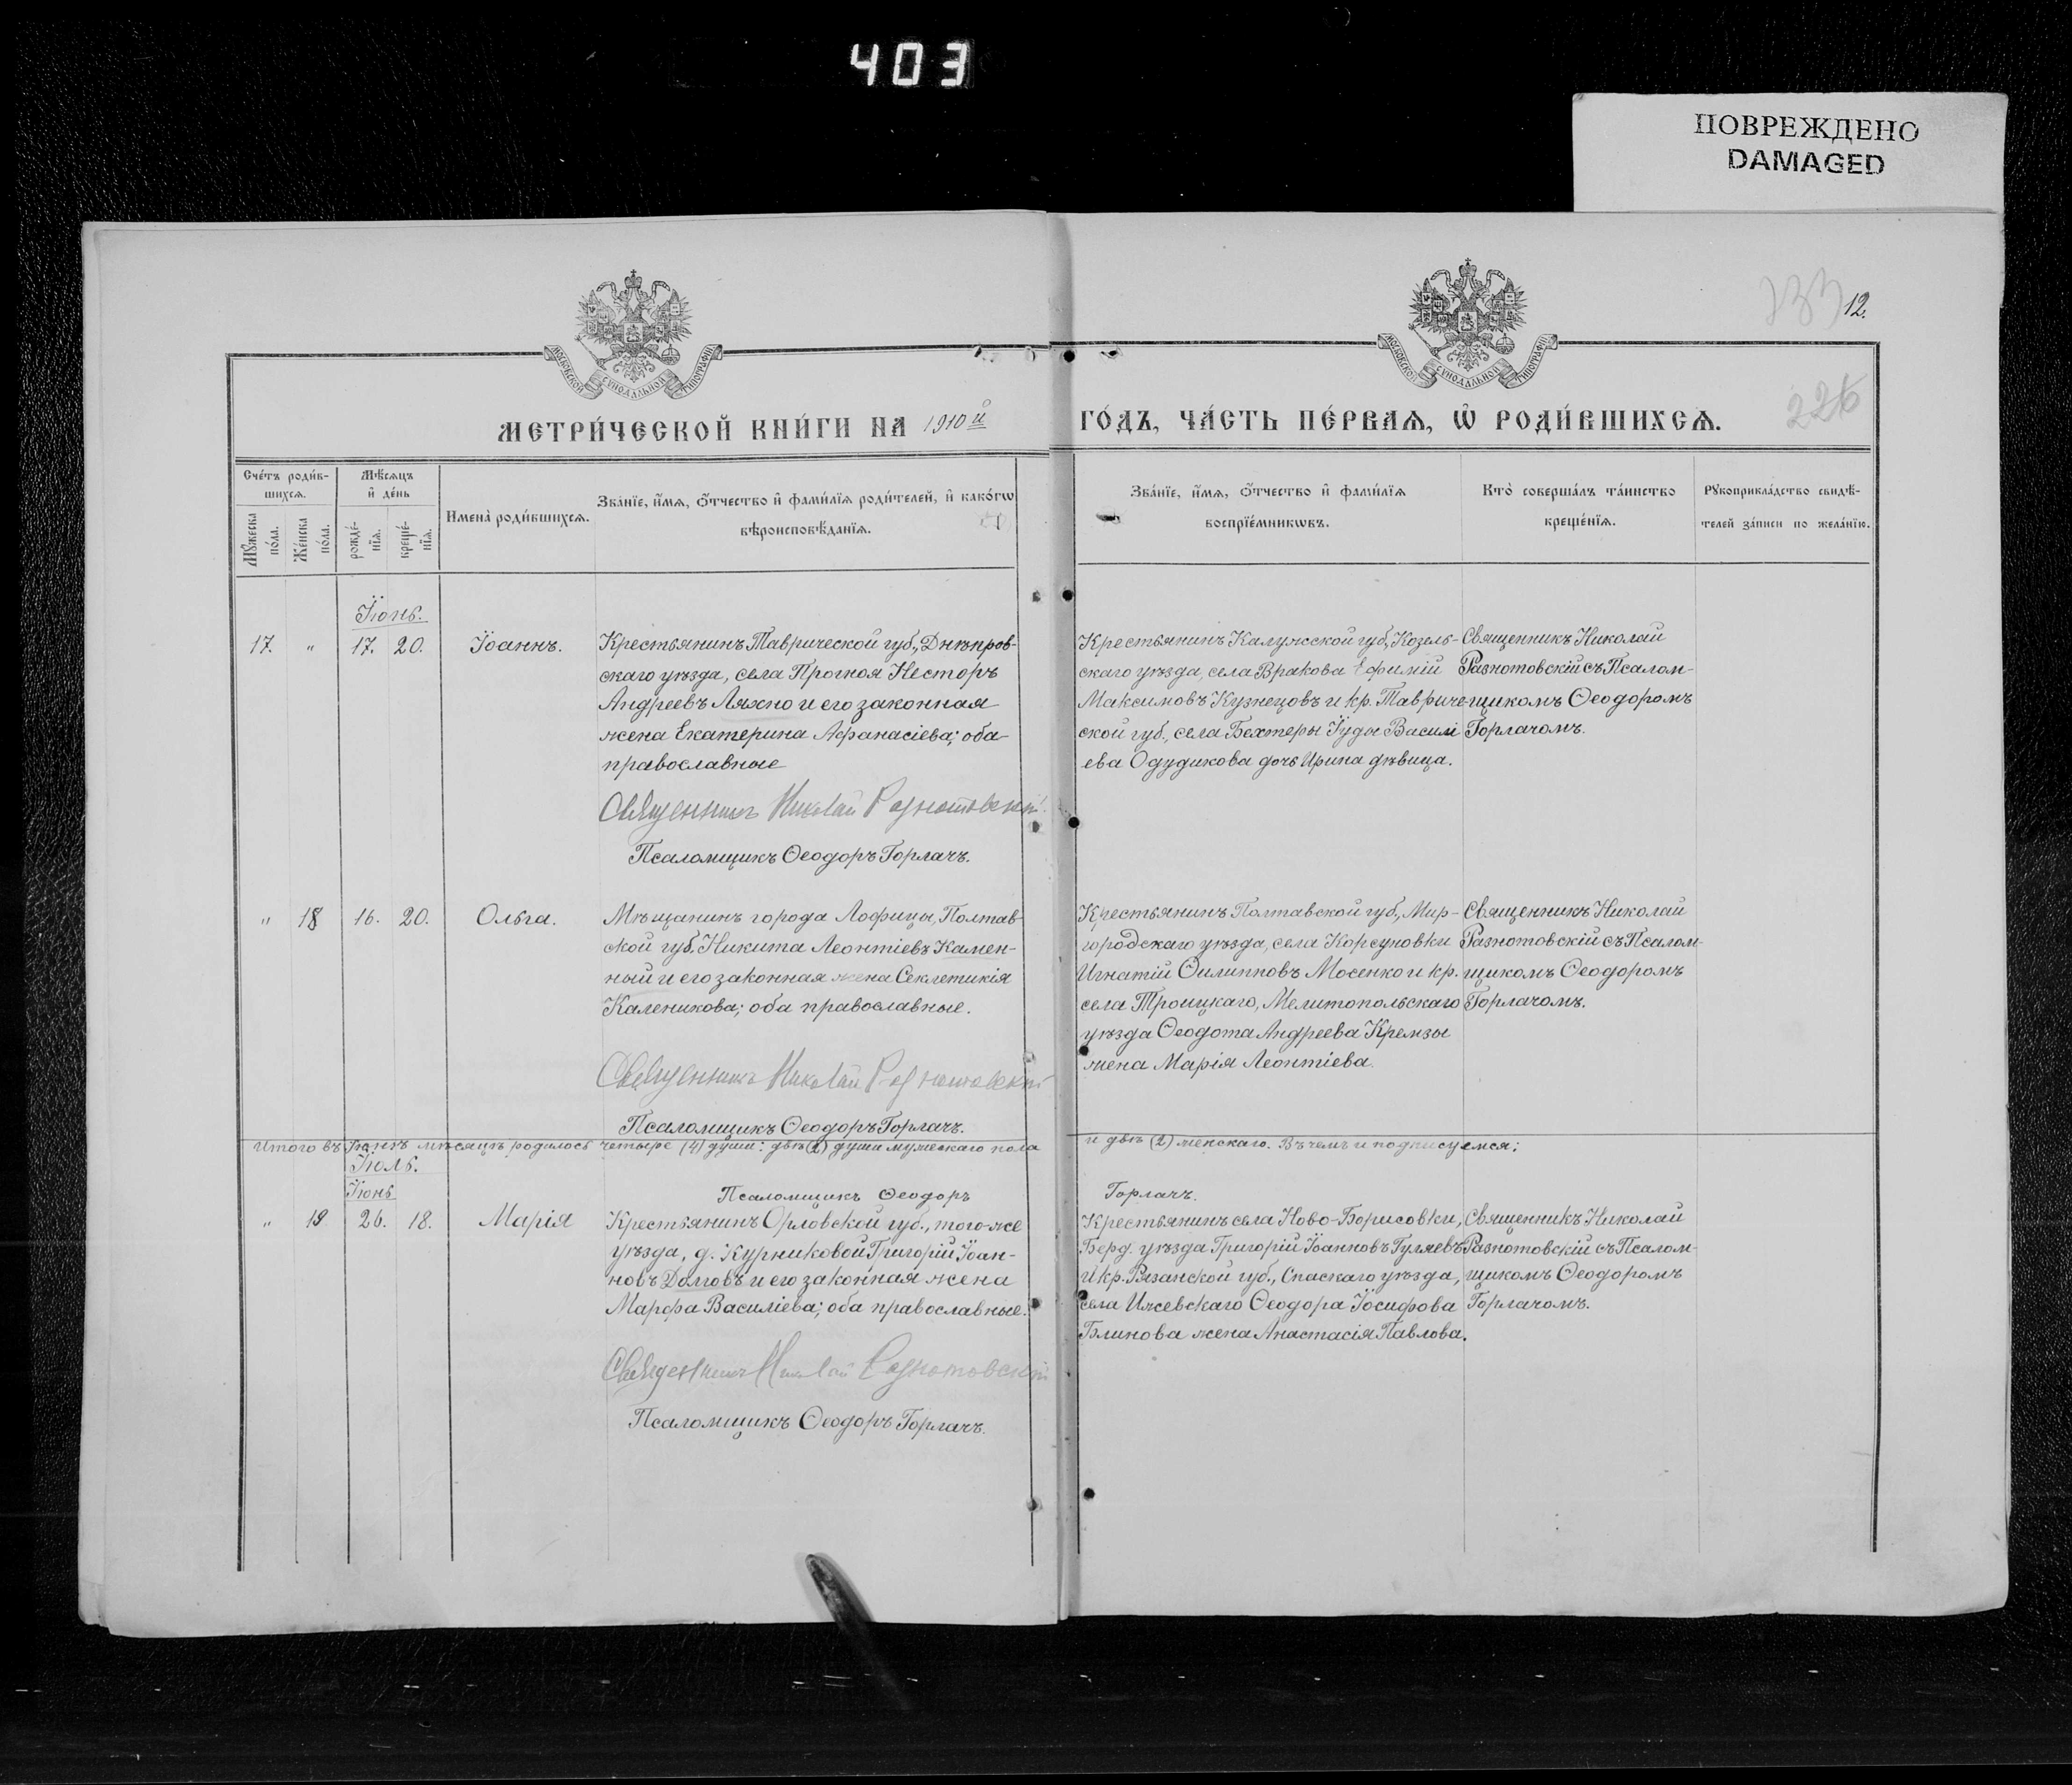 403
ПОВРЕЖДЕНО
DAMAGED
12.
226
МОСКОВСКОЙ СУНОДАЛЬНОЙ ТИПОГРАФІИ
МОСКОВСКОЙ СУНОДАЛЬНОЙ ТИПОГРАФІИ
МЕТРИ́ЧЕСКОЙ КНИ́ГИ НА 1910й ГО́ДЪ, ЧА́СТЬ ПЕ́РВАѦ, Ѡ҆ РОДИ́ВШИХСѦ.
Сче́тъ роди́в-
шихсѧ.
Мꙋ́жеска
по́ла.
Же́нска
по́ла.
Мѣ́сѧцъ
и҆ де́нь
рожде́-
нїѧ.
креще́-
нїѧ.
Имена̀ роди́вшихсѧ.
Зва́нїе, и҆́мѧ, ѻ҆́тчество и҆ фами́лїѧ роди́телей, и҆ како́гѡ
вѣроисповѣ́данїѧ.
Зва́нїе, и҆́мѧ, ѻ҆́тчество и҆ фами́лїѧ
воспрїе́мникѡвъ.
Кто̀ соверша́лъ та́инство
креще́нїѧ.
Рꙋкоприкла́дство свидѣ́-
телей за́писи по жела́нїю.
Іюнь.
17. " 17. 20. Іоаннъ.
Крестьянинъ Таврической губ., Днѣпров-
скаго уѣзда, села Прогноя Несторъ
Андреевъ Ляхно и его законная
жена Екатерина Аѳанасіева; оба
православные
Священникъ Николай Разнотовскій
Псаломщикъ Ѳеодоръ Горлачъ.
Крестьянинъ Калужской губ., Козель-
скаго уѣзда, села Вракова Ефимій
Максимовъ Кузнецовъ и кр. Тавриче-
ской губ., села Бехтеры Іуды Василі
ева Одудикова дочь Ирина дѣвица.
Священникъ Николай
Разнотовскій съ Псалом-
щикомъ Ѳеодоромъ
Горлачомъ.
" 18 16. 20. Ольга.
Мѣщанинъ города Лофицы, Полтав-
ской губ. Никита Леонтіевъ Камен-
ный и его законная жена Секлетикія
Каленикова; оба православные.
Священникъ Николай Разнотовскій
Псаломщикъ Ѳеодоръ Горлачъ.
Крестьянинъ Полтавской губ., Мир-
городскаго уѣзда, села Корсуновки
Игнатій Филипповъ Мосенко и кр.
села Троицкаго, Мелитопольскаго
уѣзда Ѳеодота Андреева Кремзы
жена Марія Леонтіева.
Священникъ Николай
Разнотовскій съ Псалом-
щикомъ Ѳеодоромъ
Горлачомъ.
Итого въ Іюнѣ мѣсяцѣ родилось четыре (4) души: двѣ (2) души мужескаго пола и двѣ (2) женскаго. Въ чемъ и подписуемся:
Псаломщикъ Ѳеодоръ Горлачъ.
Іюль.
Іюнь
" 19 26. 18. Марія
Крестьянинъ Орловской губ., того-же
уѣзда, д. Курниковой Григорій Іоан-
новъ Долговъ и его законная жена
Марфа Василіева; оба православные.
Священникъ Николай Разнотовскій
Псаломщикъ Ѳеодоръ Горлачъ.
Крестьянинъ села Ново-Борисовки,
Берд. уѣзда Григорій Іоанновъ Гуляевъ
и кр. Рязанской губ., Спаскаго уѣзда,
села Ижевскаго Ѳеодора Іосифова
Блинова жена Анастасія Павлова.
Священникъ Николай
Разнотовскій съ Псалом-
щикомъ Ѳеодоромъ
Горлачомъ.